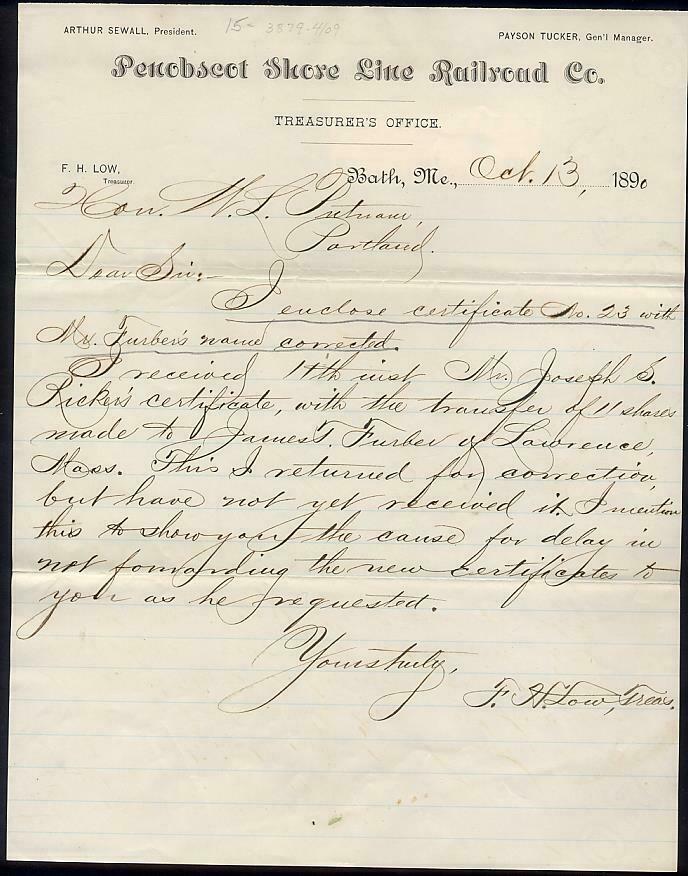 ARTHUR SEWALL, President.
15- 3879-4/09
PAYSON TUCKER, Gen'l Manager.
Penobscot Shore Line Railroad Co.
TREASURER'S OFFICE.
F. H. LOW,
Treasurer.
Bath, Me., Oct. 13, 1890
Hon. W. L. Putnam,
Portland.
Dear Sir:-
I enclose certificate No. 23 with
Mr. Furber's name corrected.
I received 11th inst Mr. Joseph S.
Ricker's certificate, with the transfer of 11 shares
made to James T. Furber of Lawrence,
Mass. This I returned for correction,
but have not yet received it. I mention
this to show you the cause for delay in
not forwarding the new certificates to
you as he requested.
Yours truly,
F. H. Low, Treas.